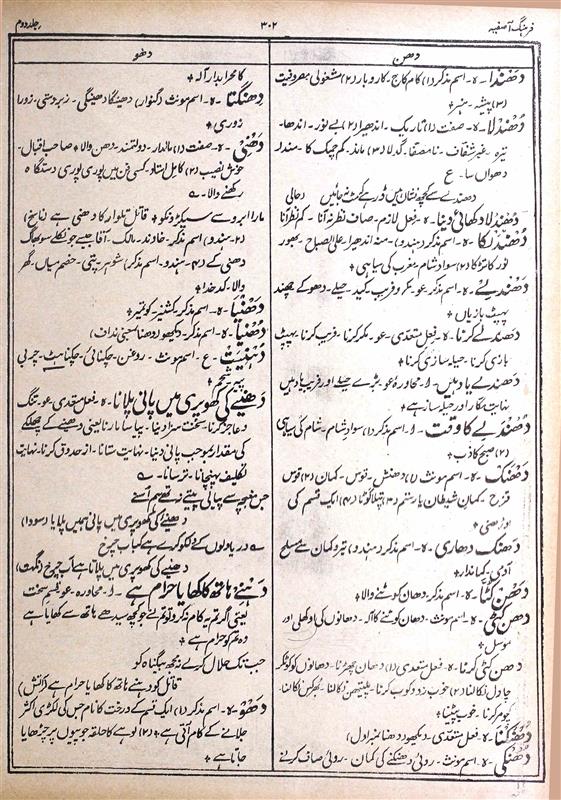 فرہنگ آصفیہ
۳۰۲
جلد دوم
دھن
دھندا۔ ہ۔ اسم مذکر (۱) کام کاج۔ کاروبار (۲) مشغولی مصروفیت
(۳) پیشہ۔ ہنر ✦
دھندلا۔ ہ۔ صفت (۱) تاریک۔ اندھیرا (۲) بے نور۔ اندھا۔
تیرہ۔ غیر شفاف۔ نامصفّا۔ گدلا (۳) ماند۔ کم چمک کا۔ مندا۔
دھواں سا۔ ع
دھندلے سے کچھ نشان ہیں ڈر ہے کہ مٹ نہ جائیں حالی
دھندلا دکھائی دینا۔ ہ۔ فعل لازم۔ صاف نظر نہ آنا۔ کم نظر آنا
دھندلکا۔ ہ۔ اسم مذکر (ہندو)۔ منہ اندھیرا۔ علی الصباح۔ بھور
نور کا تڑکا (۲) سواد شام۔ مغرب کی سیاہی ✦
دھندلے۔ ہ۔ اسم مذکر۔ عو۔ مکر و فریب۔ کید۔ حیلے۔ دھوکے چھند
پھپٹ بازیاں ✦
دھندلے کرنا۔ ہ۔ فعل متعدی۔ عو۔ مکر کرنا۔ فریب کرنا۔ پھپٹ
بازی کرنا۔ حیلہ سازی کرنا ✦
دھندلے یاد ہیں۔ ا۔ محاورۂ عو۔ بڑے حیلے اور فریب یاد ہیں
نہایت مکار اور حیلہ ساز ہے ✦
دھندلے کا وقت۔ ا۔ اسم مذکر (۱) سوادِ شام۔ شام کی سیاہی
(۲) صبح کاذب ✦
دھنک۔ ہ۔ اسم مونث (۱) دھنش۔ قوس۔ کمان (۲) قوس
قزح۔ کمانِ شیطان یا رستم (۳) پتلا گوٹا (۴) ایک قسم کی
اوڑھنی ✦
دھنک دھاری۔ ہ۔ اسم مذکر (ہندو) تیر و کمان سے مسلح
آدمی۔ کماندار ✦
دھن کٹا۔ ہ۔ اسم مذکر۔ دھان کوٹنے والا ✦
دھن کٹی۔ ہ۔ اسم مونث۔ دھان کوٹنے کا آلہ۔ دھانوں کی اوکھلی اور
موسل ✦
دھن کٹی کرنا۔ ہ۔ فعل متعدی (۱) دھان چھڑنا۔ دھانوں کو کوٹ کر
چاول نکالنا (۲) خوب زد و کوب کرنا۔ پلیتھن نکالنا۔ بھرکس نکالنا۔
کچومر کرنا۔ خوب پیٹنا ✦
دھنکنا۔ ہ۔ فعل متعدی۔ دیکھو (دھننا نمبر اول)
دھنکی۔ ہ۔ اسم مونث۔ روئی دھنکنے کی کمان۔ روئی صاف کرنے
دھو
کا محرابدار آلہ ✦
دھنگتا۔ ہ۔ اسم مونث (گنوار) دھینگا دھینگی۔ زبردستی۔ زورا
زوری ✦
دھنی۔ ہ۔ صفت (۱) مالدار۔ دولتمند۔ دھن والا ✦ صاحب اقبال۔
خوش نصیب (۲) کامل استاد۔ کسی فن میں پوری پوری دستگاہ
رکھنے والا۔ ؎
مارا ابرو سے سیکڑوں کو ✦ قاتل تلوار کا دھنی ہے (ناسخ)
(۲۔ ہندو) اسم مذکر۔ خاوند۔ مالک۔ آقا جیسے جو نکلے سو بھاگ
دھنی کے (۴۔ ہندو۔ اسم مذکر) شوہر۔ پتی۔ خصم۔ میاں۔ گھر
والا۔ کدخدا ✦
دھنیا۔ ہ۔ اسم مذکر۔ کشنیز۔ کوتمیر ✦
دھنیا۔ ہ۔ اسم مذکر۔ دیکھو (دھنا بمعنی نداف)
دہنیت۔ ع۔ اسم مونث۔ روغن۔ چکنائی۔ چکناہٹ۔ چربی
پیہ۔ شحم ✦
دھنیے کی کھوپری میں پانی پلانا۔ ہ۔ فعل متعدی۔ عو۔ تنگ
و عاجز کرنا۔ سخت سزا دینا۔ پیاسا مارنا یعنی دھنیے کے چھلکے
کی مقدار بموجب پانی دینا۔ نہایت ستانا۔ از حد دق کرنا۔ نہایت
تکلیف پہنچانا۔ ترسانا۔ ؎
دھنیے کی کھوپری میں پانی ہمیں پلایا (سودا)
دھنیے کی کھوپری میں پلاتا ہے آب چرخ (نکہت)
دہنے ہاتھ کا کھایا حرام ہے۔ ا۔ محاورہ۔ عو۔ قسم سخت
یعنی اگر تم یہ کام نہ کرو تو تم نے جو کچھ سیدھے ہاتھ سے کھایا ہے
وہ تم کو حرام ہے ✦
جب تک حلال کرلے نہ مجھ بیگناہ کو
قاتل کو دہنے ہاتھ کا کھایا حرام ہے (آتش)
دھو۔ ہ۔ اسم مذکر (۱) ایک قسم کے درخت کا نام جس کی لکڑی اکثر
جلانے کے کام آتی ہے ✦ (۲) لوہے کا حلقہ جو پہیوں پر چڑھایا
جاتا ہے ✦